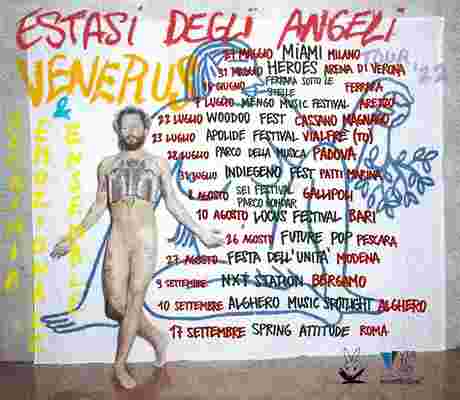 ESTASI DEGLI ANGELI
VENERUS
&
TOUR '22
MAGGIO MiAMi MILANO
31 MAGGIO HEROES ARENA DI VERONA
GIUGNO FERRARA SOTTO LE STELLE FERRARA
LUGLIO MENGO MUSIC FESTIVAL AREZZO
22 LUGLIO WOODOO FEST CASSANO MAGNAGO
23 LUGLIO APOLIDE FESTIVAL VIALFRÈ (TO)
28 LUGLIO PARCO DELLA MUSICA PADOVA
31 LUGLIO INDIEGENO FEST PATTI MARINA
8 AGOSTO SEI FESTIVAL PARCO GONDAR GALLIPOLI
10 AGOSTO LOCUS FESTIVAL BARI
26 AGOSTO FUTURE POP PESCARA
27 AGOSTO FESTA DELL'UNITA' MODENA
9 SETTEMBRE NXT STATION BERGAMO
10 SETTEMBRE ALGHERO MUSIC SPOTLIGHT ALGHERO
17 SETTEMBRE SPRING ATTITUDE ROMA